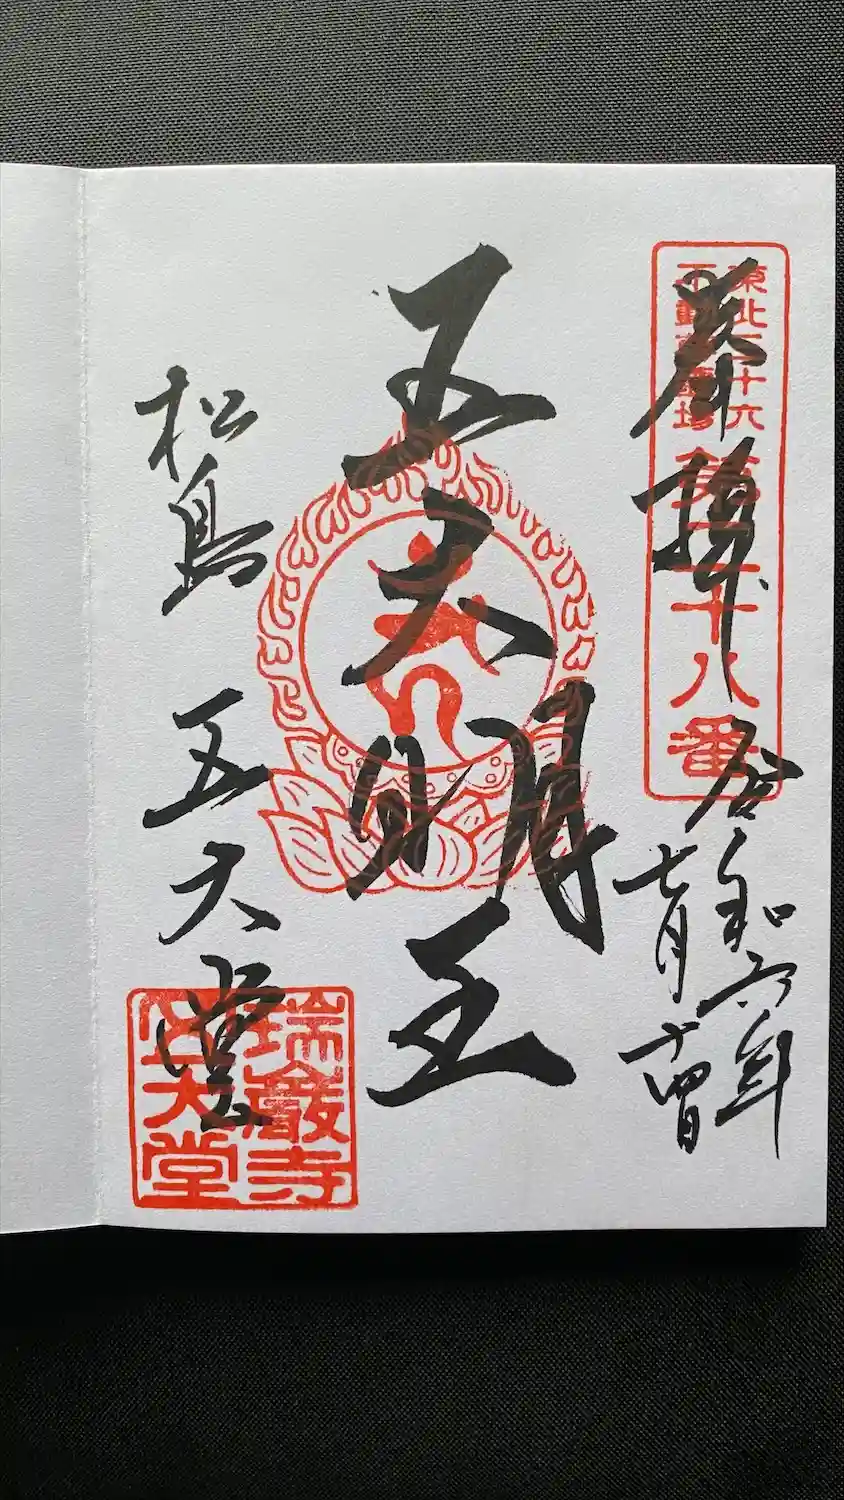 奉拝
東北三十六
不動尊霊場
第二十八番
令和六年
七月十四日
五大明王
松島
五大堂
瑞巌寺
五大堂